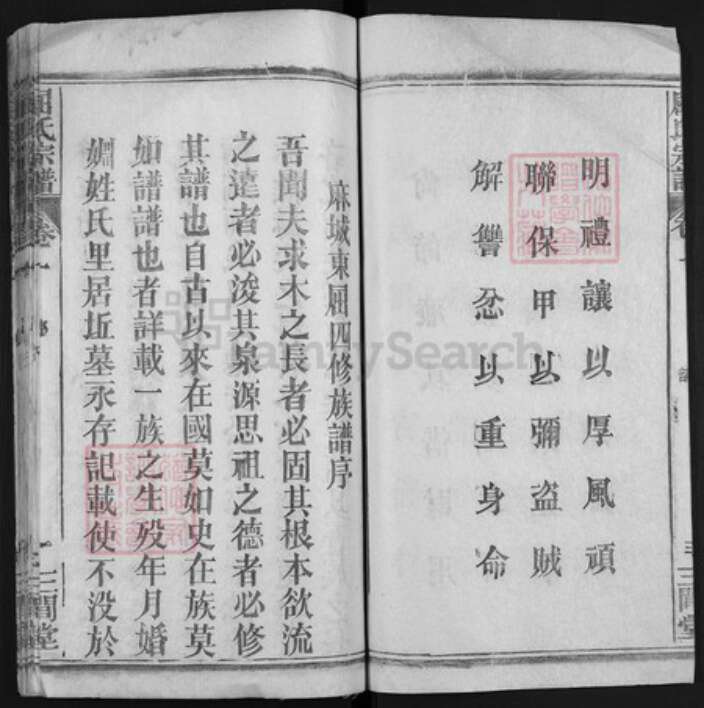 明禮讓以厚風頑
聯保甲以彌盜賊
解讐忿以重身命
麻城東屈四修族譜序
吾聞夫求木之長者必固其根本欲流
之遠者必浚其泉源思祖之德者必修
其譜也自古以來在國莫如史在族莫
如譜譜也者詳載一族之生歿年月婚
姻姓氏里居坵墓永存記載使不没於
屈氏宗譜
卷一
三閭堂
FamilySearch